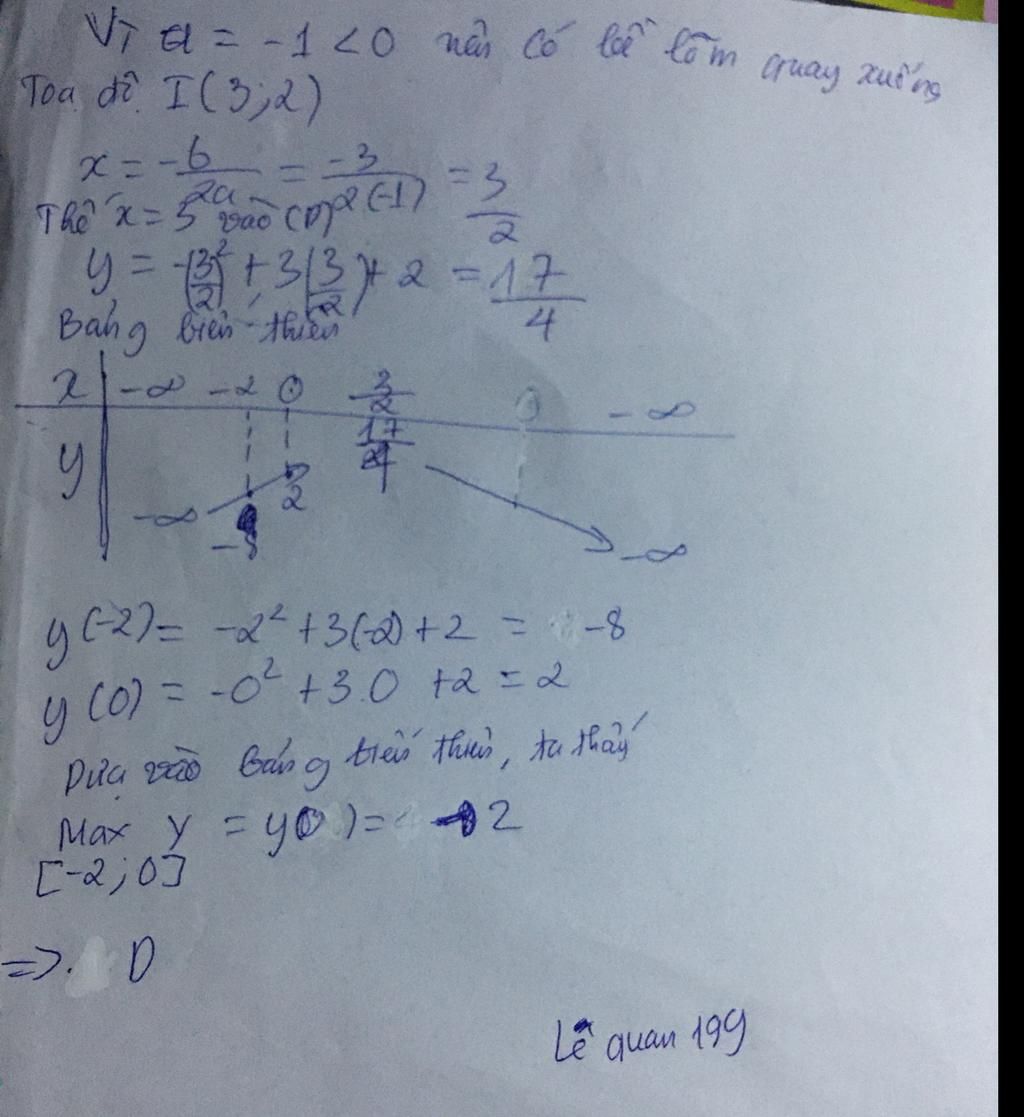 Vì a = -1 < 0 nên có bề lõm quay xuống
Toạ độ I(3;2)
x = -b/2a = -3/2(-1) = 3/2
Thế x = 3 vào (P)
y = -(3/2)² + 3(3/2) + 2 = 17/4
Bảng biến thiên
x -∞ -2 0 3/2 -∞
y 17/4
-∞ 2
-8 -∞
y(-2) = -2² + 3(-2) + 2 = -8
y(0) = -0² + 3.0 + 2 = 2
Dựa vào bảng biến thiên, ta thấy
Max y = y(0) = 2
[-2;0]
=>. D
Lê quan 199